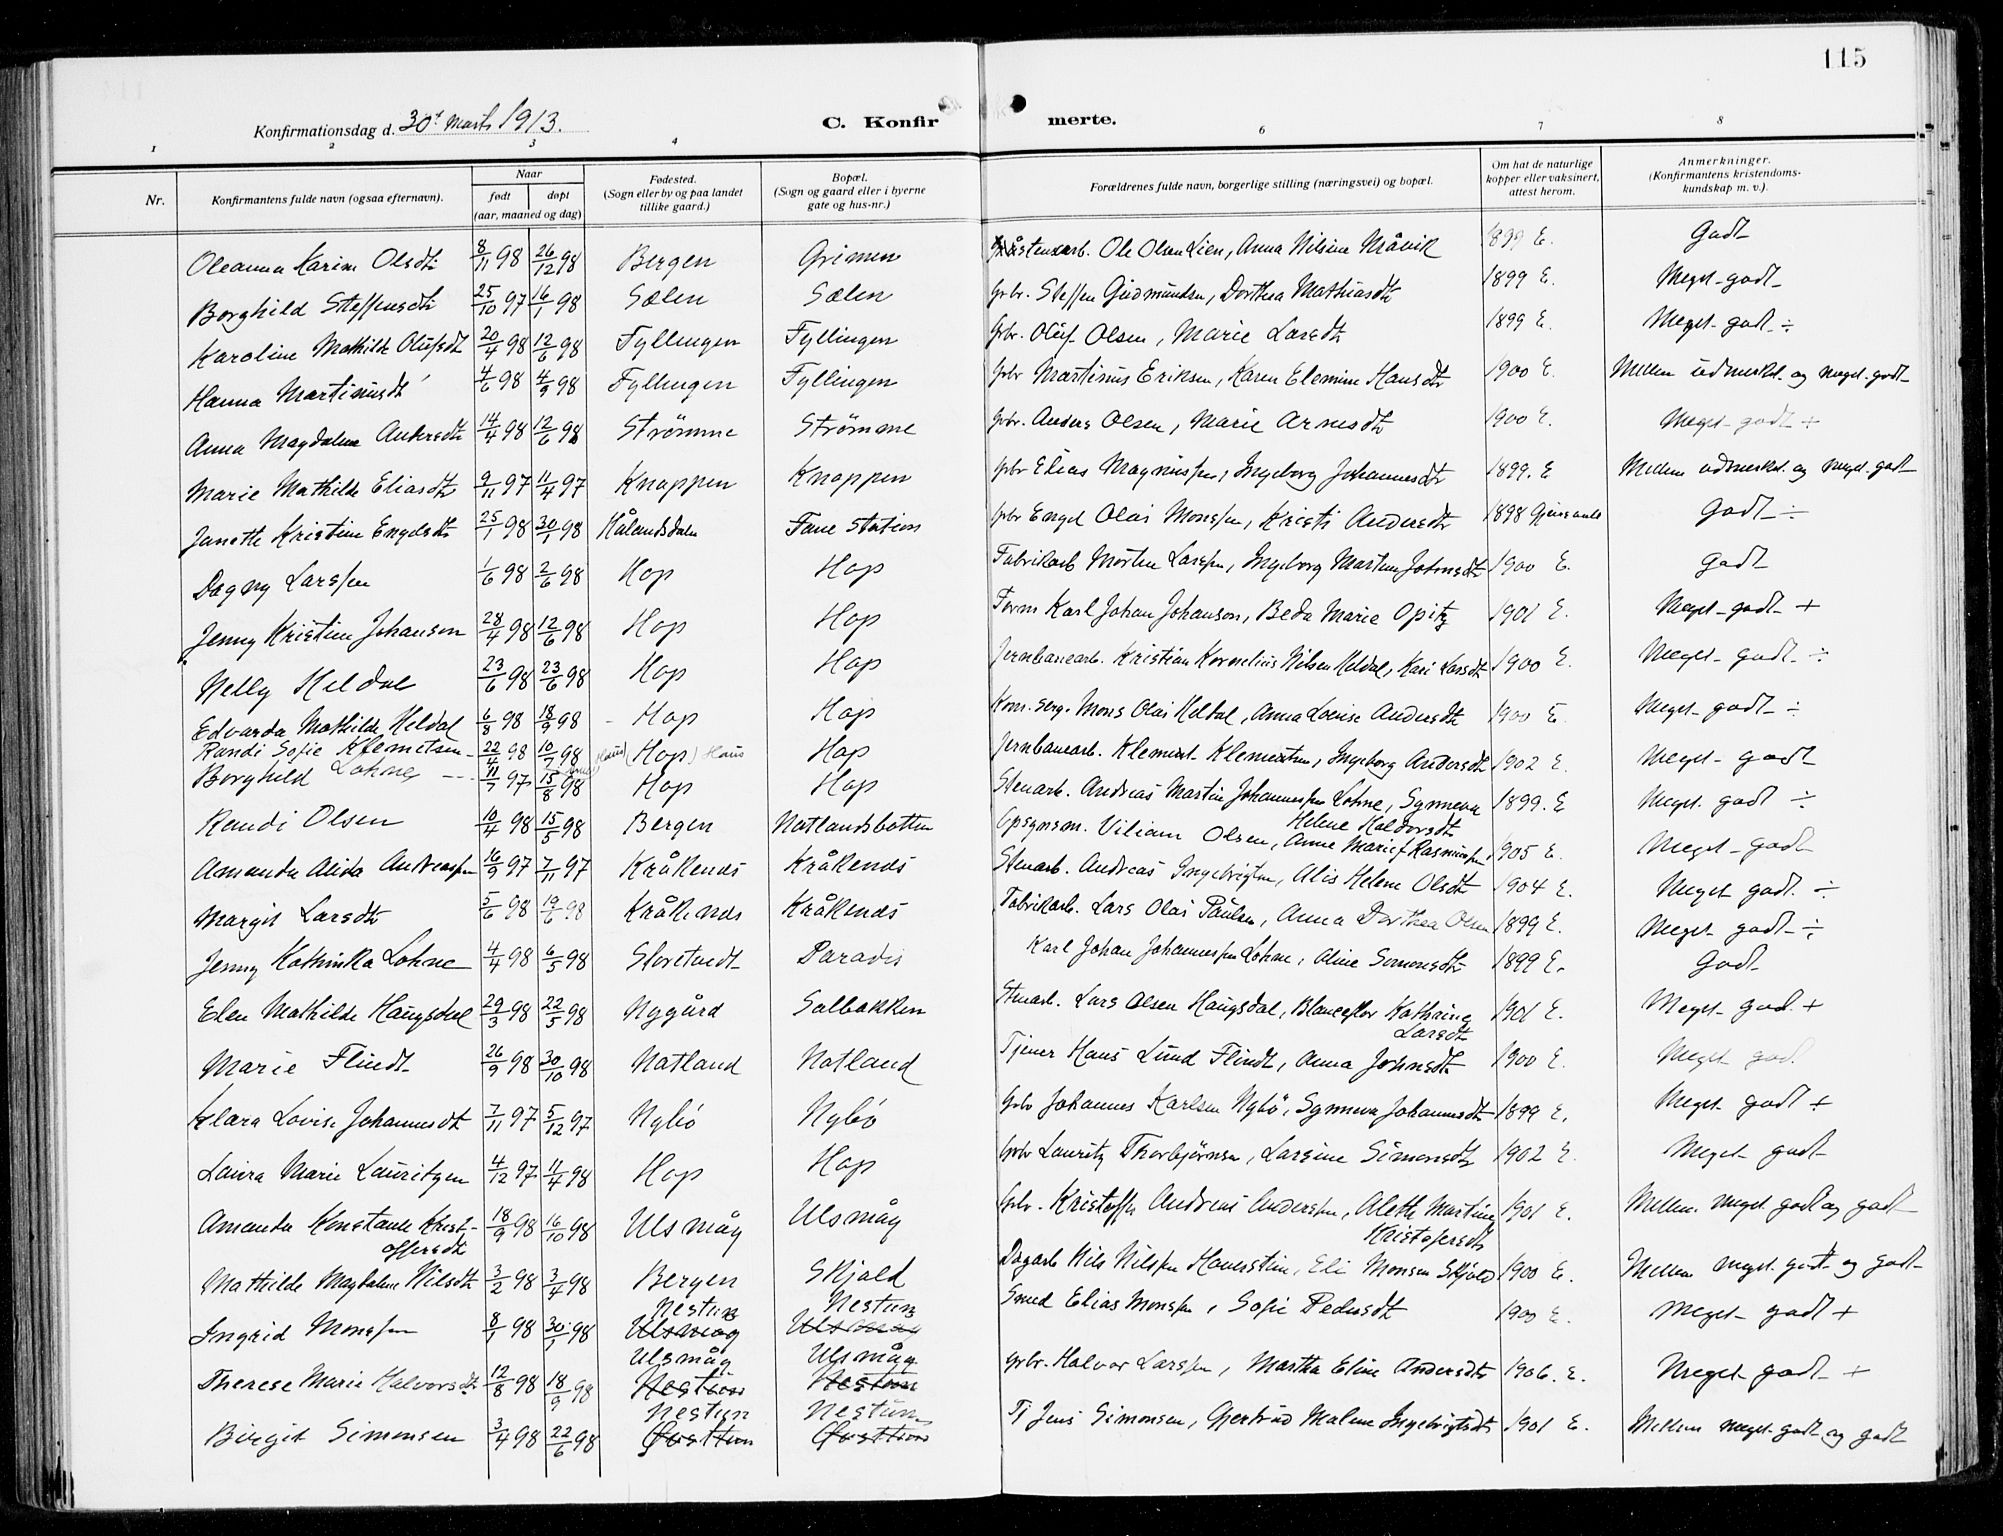 115
Konfirmationsdag d. 30t Marts 1913.
C. Konfir merte.
1 2 3 4 6 7 8
Nr.
Konfirmantens fulde navn (ogsaa efternavn).
Naar
født døpt
(aar, maaned og dag)
Fødested.
(Sogn eller by og paa landet
tillike gaard.)
Bopæl.
(Sogn og gaard eller i byerne
gate og hus-nr.)
Forældrenes fulde navn, borgerlige stilling (næringsvei) og bopæl.
Om hat de naturlige
kopper eller vaksinert,
attest herom.
Anmerkninger.
(Konfirmantens kristendoms-
kundskap m. v.).
Oleanna Karine Olsdtr 8/11 98 26/12 98 Bergen Grimen Ole Olsen Lien, Anna Nilsine Måvik 1899 E. Godt
Borghild Steffensdtr 25/10 97 16/1 98 Sælen Sælen Gbr. Steffen Gudmundsen, Dorthea Mathiasdtr 1899 E. Meget godt
Karoline Mathilde Olufsdtr 20/4 98 12/6 98 Fyllingen Fyllingen Gbr. Oluf Olsen, Marie Larsdtr 1899 E. Meget godt ÷
Hanna Martinusdtr 4/6 98 4/9 98 Fyllingen Fyllingen Gbr Martinus Eriksen, Karen Elemine Hansdtr 1900 E. Mellem udmerket og meget godt
Anna Magdalene Andersdtr 14/4 98 12/6 98 Strømme Strømme Gbr. Anders Olsen, Marie Arnesdtr 1900 E. Meget godt +
Marie Mathilde Eliasdtr 9/11 97 11/4 97 Knappen Knappen Gbr Elias Magnussen, Ingeborg Johannesdtr 1899. E Mellem udmerket og meget godt
Janette Kristine Engelsdtr 25/1 98 30/1 98 Hålandsdalen Fane Station Gbr Engel Olai Monssen, Kristi Andersdtr 1898 Godt ÷
Dagny Larssen 1/6 98 2/6 98 Hop Hop Fabrikarb Morten Larssen, Ingeborg Martine Johnsdtr 1900 E. Godt
Jenny Kristine Johanson 28/4 98 12/6 98 Hop Hop Form Karl Johan Johanson, Beda Marie Opitz 1901 E. Meget godt +
Nelly Heldal 23/6 98 23/6 98 Hop Hop Jernbanearb. Kristian Kornelius Nilsen Heldal, Kari Larsdtr 1900 E. Meget godt ÷
Edvarda Mathilde Heldal 6/8 98 18/9 98 Hop Hop Kom. serg. Mons Olai Heldal, Anna Lovise Andersdtr 1900 E. Meget godt ÷
Randi Sofie Klemetsen 22/4 98 10/7 98 Haus (Hop) Haus Hop Jernbanearb. Klement Klementsen, Ingeborg Andersdtr 1902 E. Meget godt
Borghild Lohne 11/7 97 15/8 98 Hop Hop Stenarb. Andreas Martin Johannessen Lohne, Synneva 1899. E Meget godt ÷
Helene Haldorsdtr
Randi Olsen 10/4 98 15/5 98 Bergen Natlandsbotten Opsynsm. Viliam Olsen, Anne Marie f Rasmussen 1905 E. Meget godt
Amanda Alida Andreassen 16/9 97 7/11 97 Kråkenes Kråkenes Stenarb. Andreas Ingebrigtsen, Alis Helene Olsdtr 1904 E. Meget godt ÷
Margit Larsdtr 5/6 98 19/6 98 Kråkenes Kråkenes Fabrikarb. Lars Olai Paulsen, Anna Dorthea Olsen 1899 E. Meget godt ÷
Jenny Kathinka Lohne 4/4 98 6/5 98 Storetvedt Paradis Karl Johan Johannessen Lohne, Aline Simonsdtr 1899 E. Godt
Elen Mathilde Haugsdal 29/3 98 22/5 98 Nygård Solbakken Stenarb. Lars Olsen Haugsdal, Blanceflor Kathrine 1901 E. Meget god +
Larsdtr
Marie Flindt 26/9 98 30/10 98 Natland Natland Tjener Hans Lund Flindt, Anna Johnsdtr 1900 E. Meget god.
Klara Lovise Johannesdtr 7/11 97 5/12 97 Nybö Nybö Gbr Johannes Karlsen Nybö, Synneva Johannesdtr 1899 E. Meget godt +
Laura Marie Lauritzen 4/12 97 11/4 98 Hop Hop Gbr Lauritz Thorbjørnsen, Larsine Simonsdtr 1902 E. Meget godt
Amanda Konstanse Krist- 18/9 98 16/10 98 Ulsmåg Ulsmåg Gbr. Kristoffer Andreas Anderssen, Alette Martine 1901 E. Mellem meget godt og godt
offersdtr Kristofersdtr
Mathilde Magdalene Nilsdtr 3/2 98 3/4 98 Bergen Skjold Dagarb Nils Nilssen Haverstein, Eli Monsen Skjold 1900 E. Mellem meget godt og godt
Nestun Nestun
Ingrid Monssen 8/1 98 30/1 98 Ulsmåg Ulsmåg Smed Elias Monssen, Sofie Pedersdtr 1900 E. Meget godt +
Ulsmåg Ulsmåg
Therese Marie Halvorsdtr 12/8 98 18/9 98 Nestun Nestun Gbr. Halvor Larssen, Martha Eline Andersdtr 1906. E. Meget godt +
Nestun Nestun
Birgit Simonsen 3/4 98 22/6 98 Tj Jens Simonsen, Gjertrud Malene Ingebrigtsdtr 1901 E. Mellem meget godt og godt